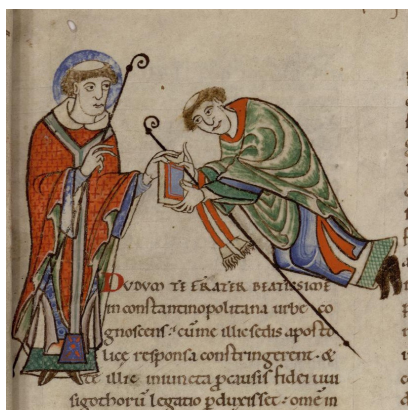 DUDUM TE FRATER BEATISSIME
in constantinopolitana urbe co
gnoscens · cu me illic sedis aposto
lice responsa constringerent · &
te illic iniuncta p causis fidei uui
sigothorũ legatio pduxisset · ome in